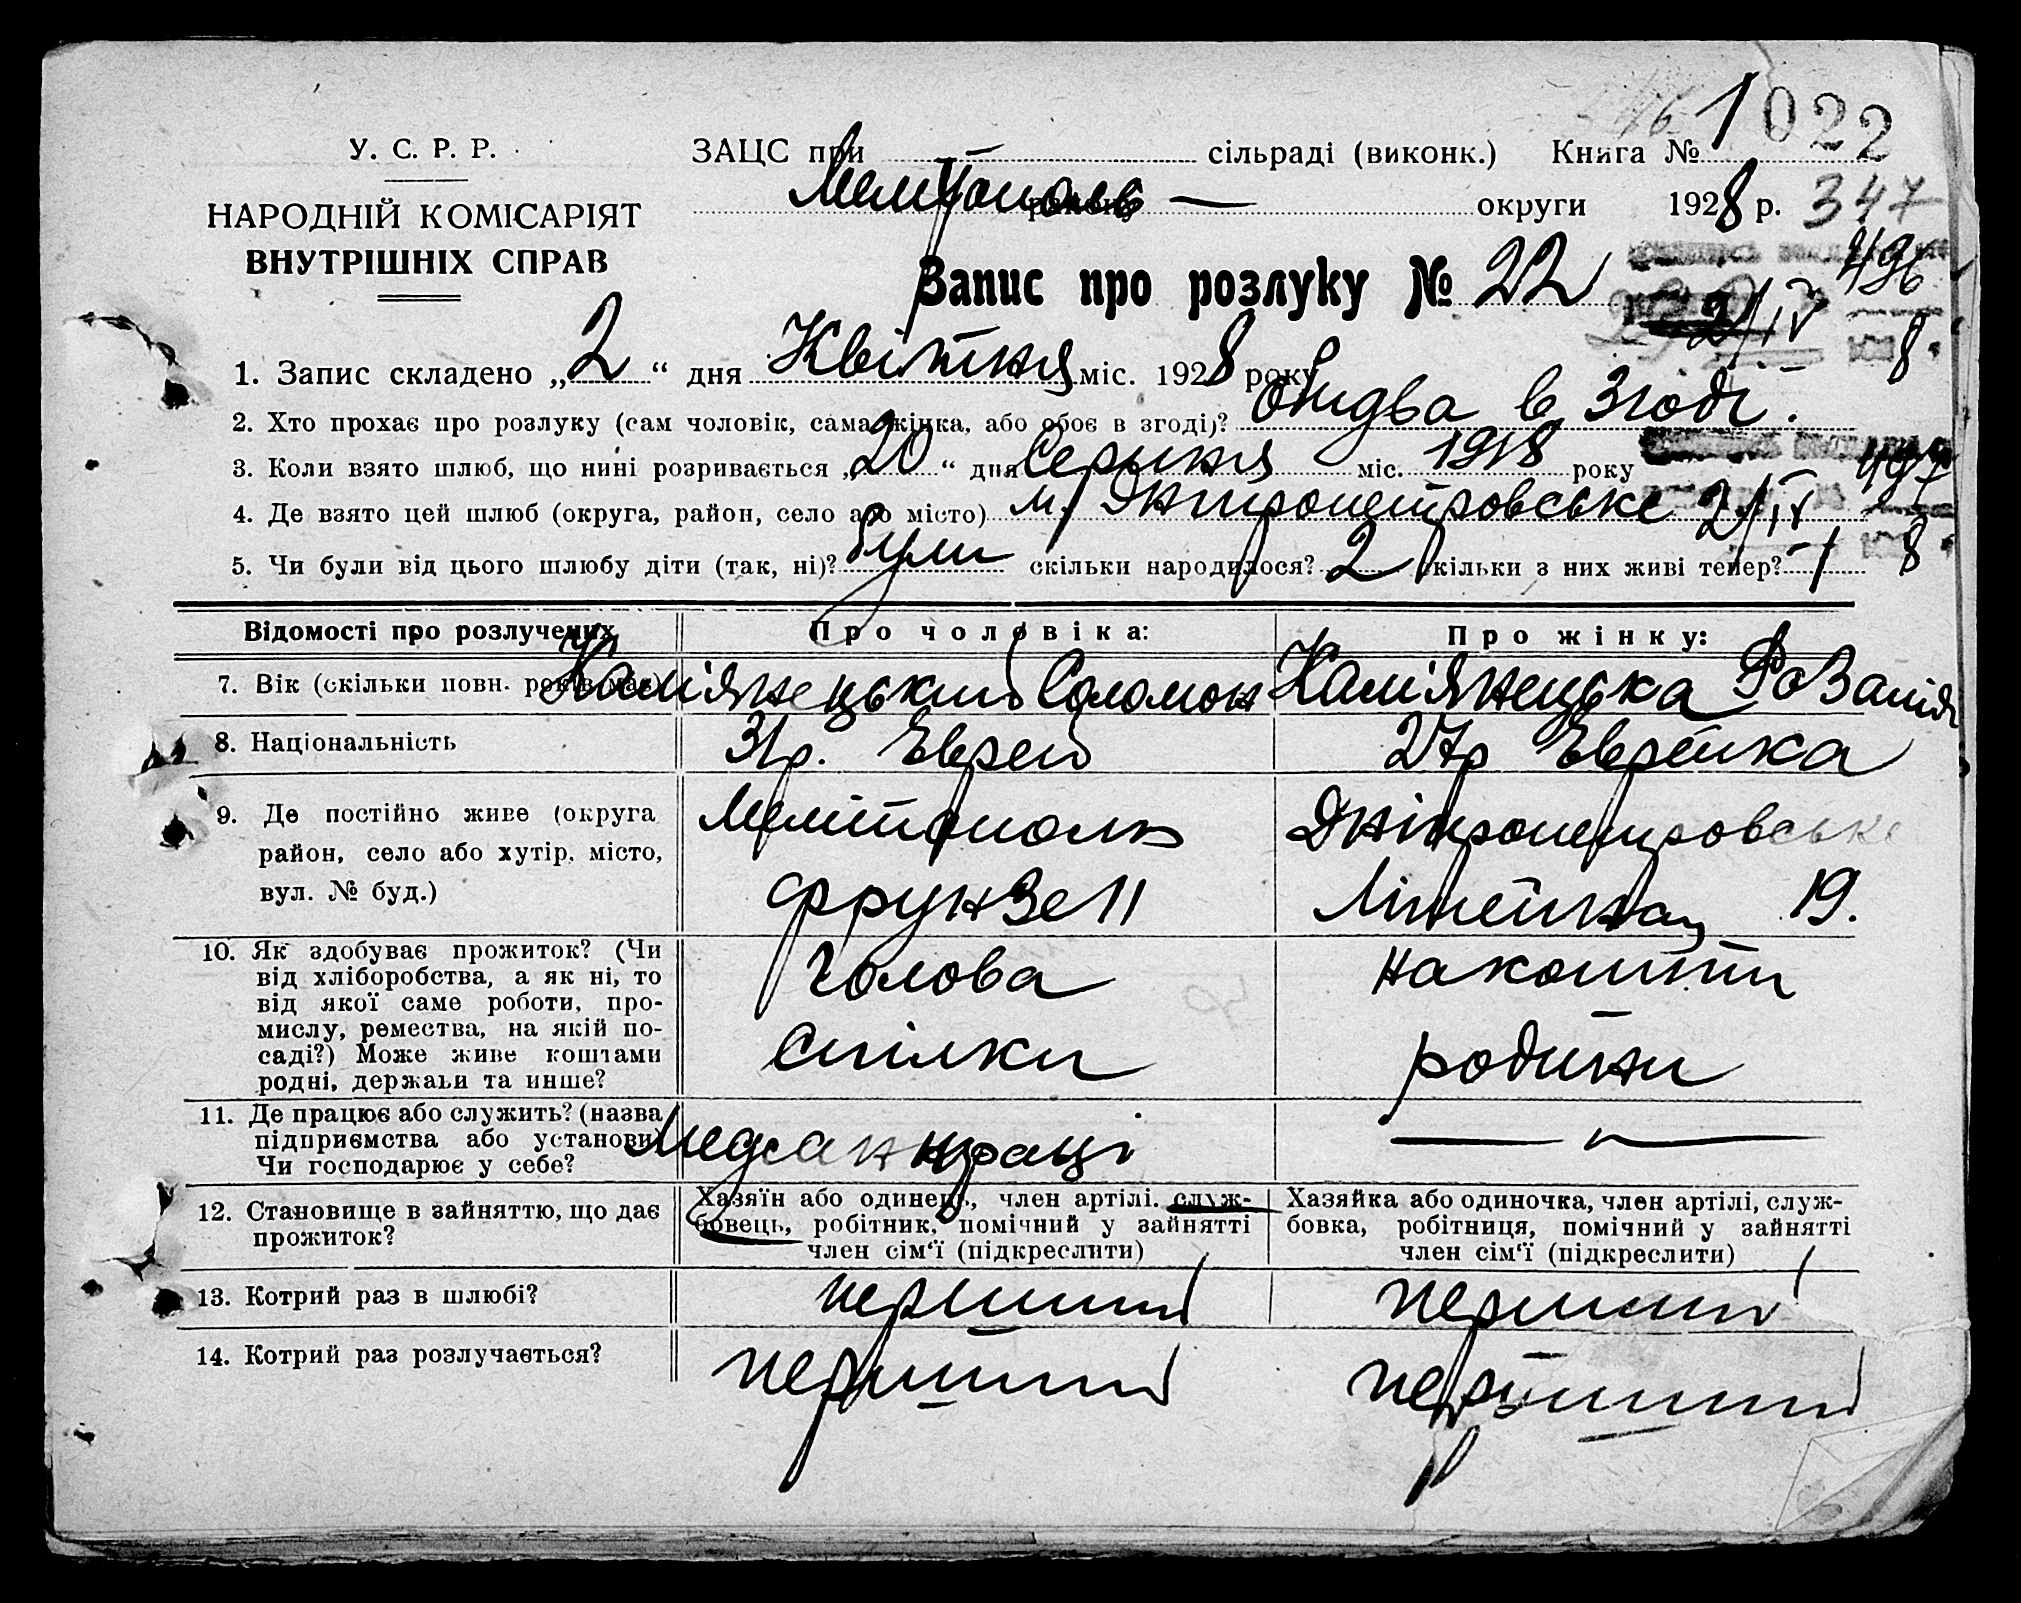 У. С. Р. Р.
НАРОДНІЙ КОМІСАРІЯТ
ВНУТРІШНІХ СПРАВ
ЗАЦС при сільраді (виконк.) Книга № 1 022
округи 1928 р. 347
Запис про розлуку № 22
496
2/IV
8
1. Запис складено „2“ дня Квітня міс. 1928 року
2. Хто прохає про розлуку (сам чоловік, сама жінка, або обоє в згоді)? Обидва в згоді.
3. Коли взято шлюб, що нині розривається „20“ дня Серпня міс. 1918 року
497
4. Де взято цей шлюб (округа, район, село або місто) м. Дніпропетровське 2/IV
8
5. Чи були від цього шлюбу діти (так, ні)? були скільки народилося? 2 скільки з них живі тепер? 1
Відомості про розлучених Про чоловіка: Про жінку:
7. Вік (скільки повн. років має) Кам'янецький Соломон Кам'янецька Розалія
8. Національність 31р. Еврей 27р Еврейка
9. Де постійно живе (округа район, село або хутір, місто, вул. № буд.)
Мелітополь
Фрунзе 11
Дніпропетровське
Лінейная 19.
10. Як здобуває прожиток? (Чи
від хліборобства, а як ні, то
від якої саме роботи, про-
мислу, ремества, на якій по-
саді?) Може живе коштами
родні, держави та инше?
Голова
Спілки
на кошти
родини
11. Де працює або служить? (назва
підприємства або установи)
Чи господарює у себе?
Медсанпраці
12. Становище в зайняттю, що дає
прожиток?
Хазяїн або одинець, член артілі, служ-
бовець, робітник, помічний у зайнятті
член сім'ї (підкреслити)
Хазяйка або одиночка, член артілі, служ-
бовка, робітниця, помічний у зайнятті
член сім'ї (підкреслити)
13. Котрий раз в шлюбі? перший перший
14. Котрий раз розлучається? перший перший